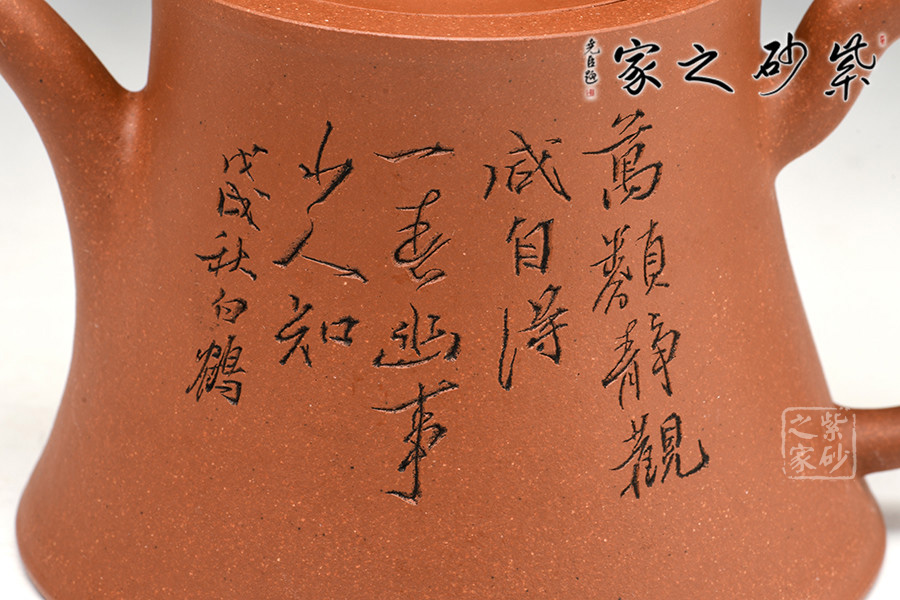 紫砂之家
萬類靜觀
咸自得
一春幽事
少人知
戊戌秋白鶴
紫砂
之家